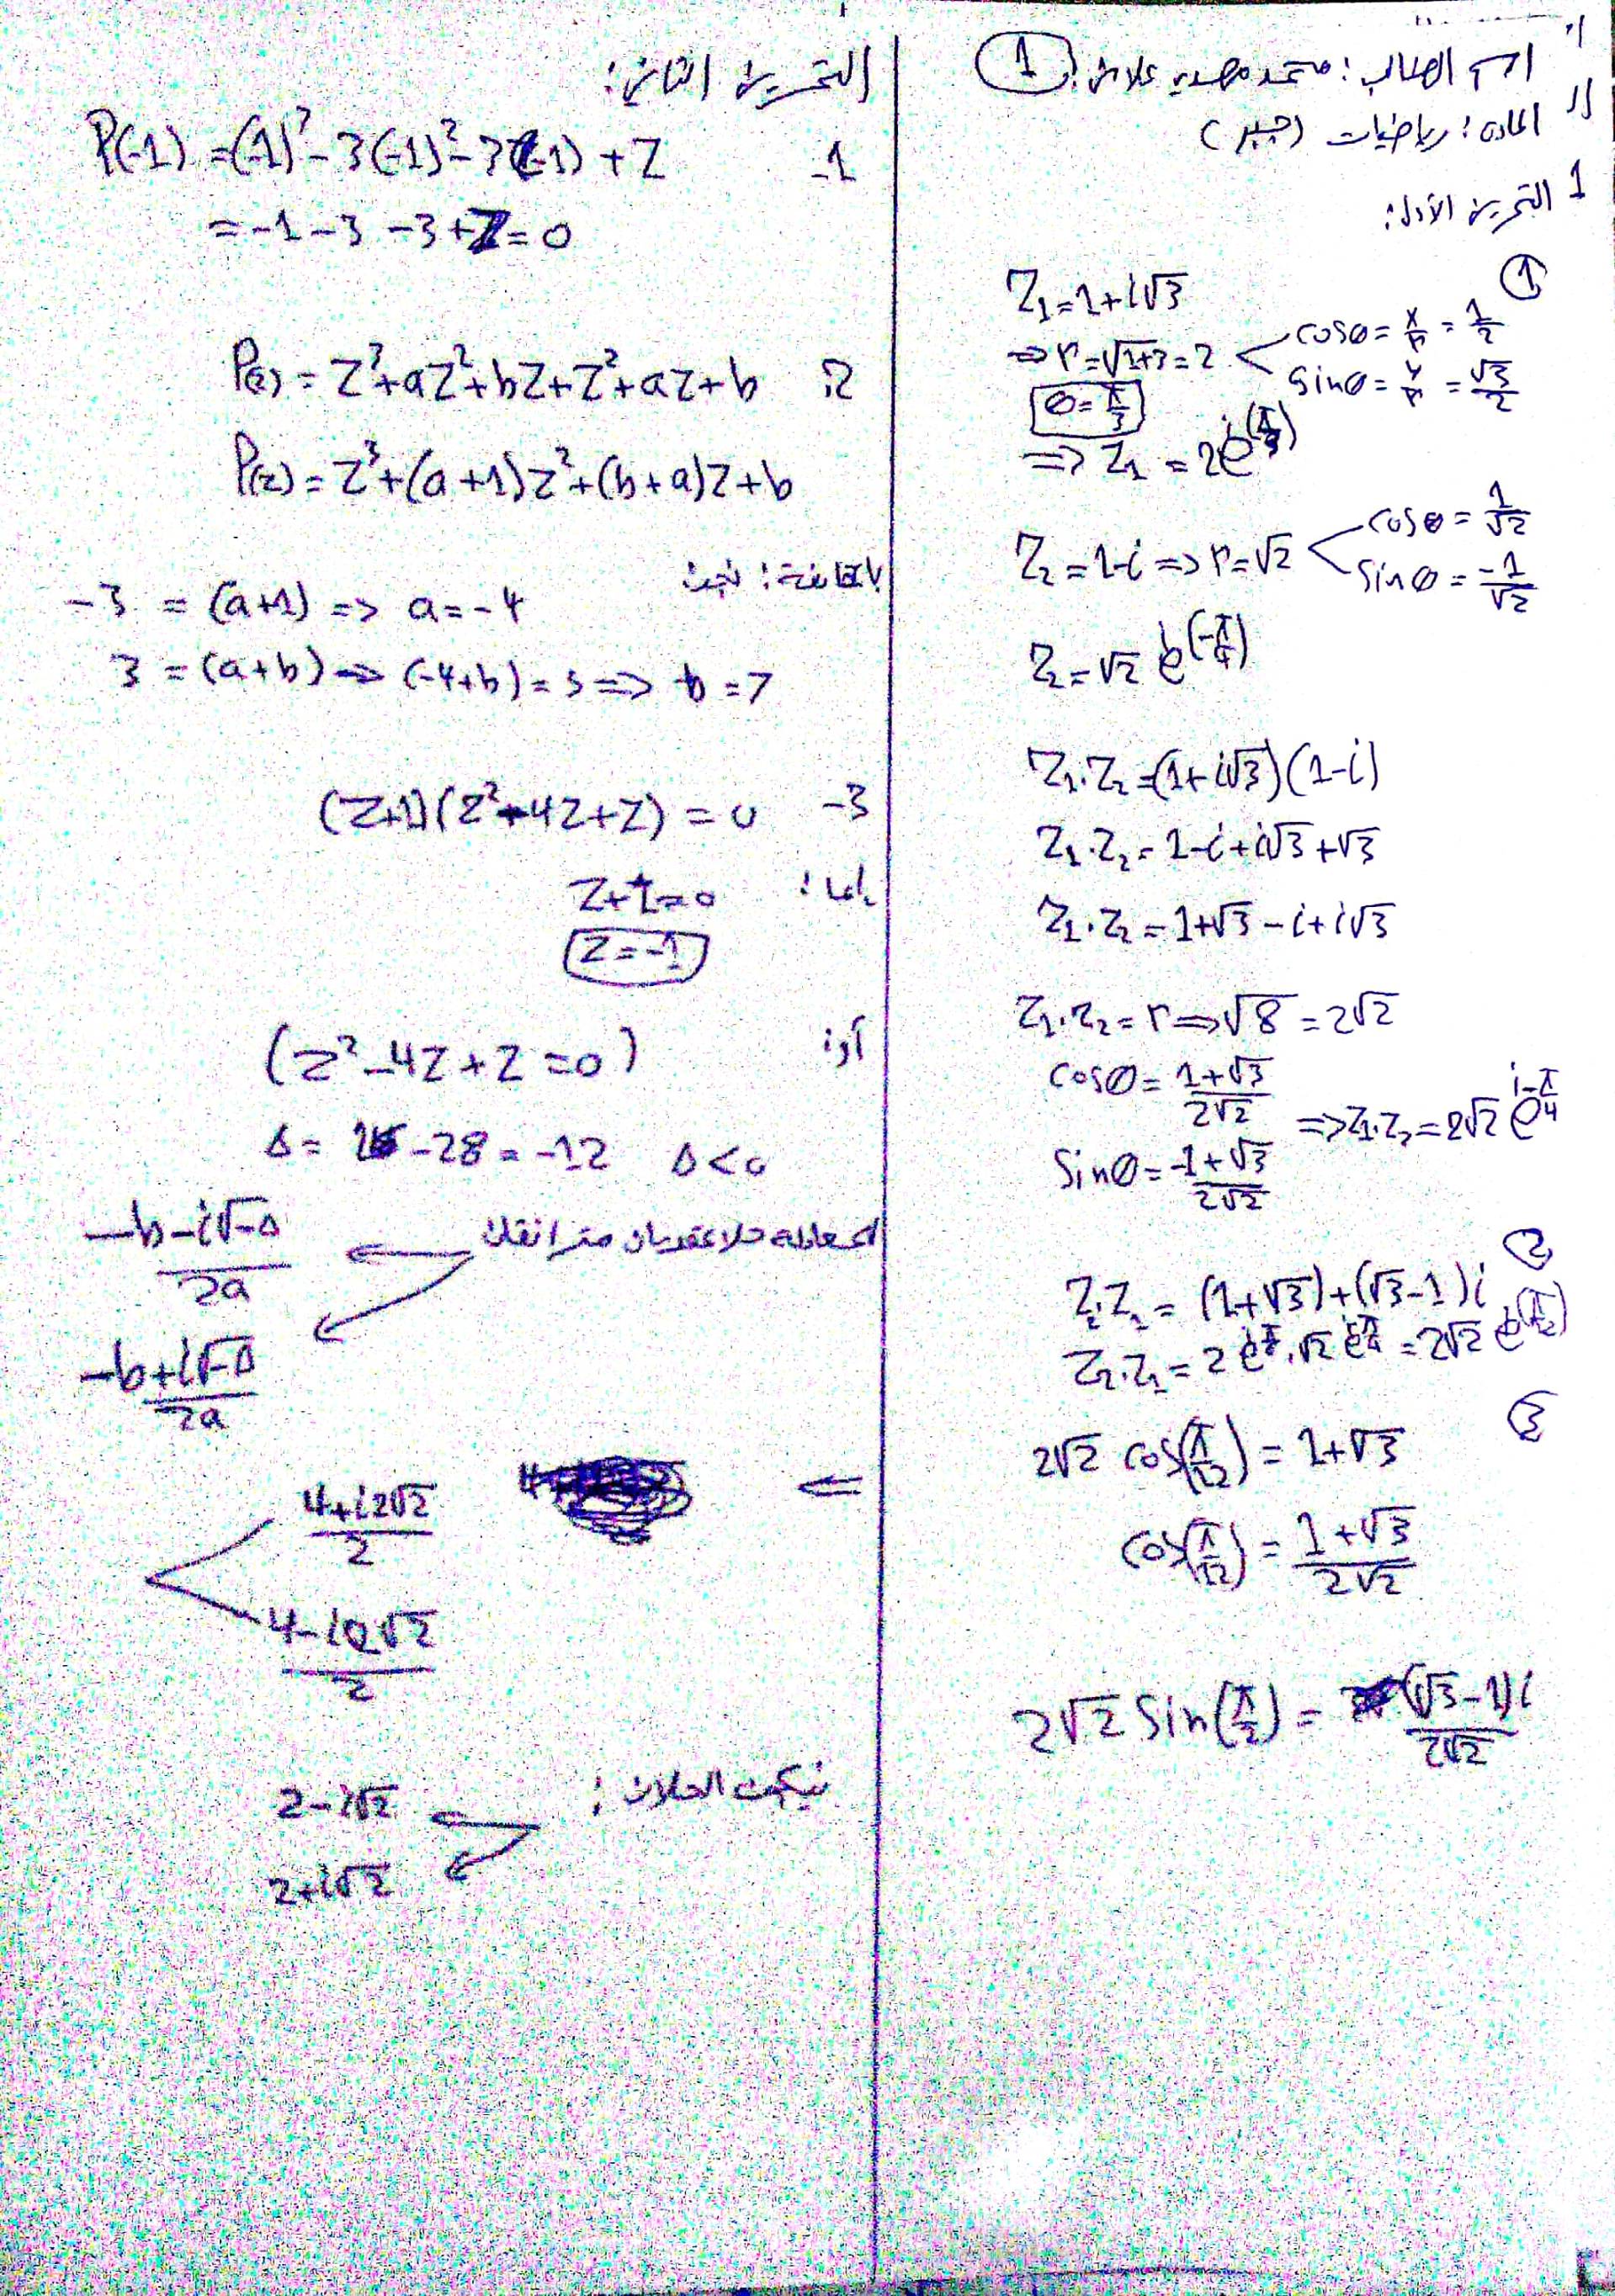 اسم الطالب: محمد مهدي علان. 1
المادة: رياضيات (جبر)
التمرين الأول:
1
Z₁=1+i√3
⇒ r=√1+3=2 cosθ=x/r=1/2
sinθ=y/r=√3/2
θ=π/3
⇒ Z₁=2e^i(π/3)
Z₂=1-i⇒r=√2 cosθ=1/√2
sinθ=-1/√2
Z₂=√2 e^i(-π/4)
Z₁.Z₂=(1+i√3)(1-i)
Z₁.Z₂=1-i+i√3+√3
Z₁.Z₂=1+√3-i+i√3
Z₁.Z₂=r⇒√8=2√2
cosθ=1+√3/2√2
⇒Z₁.Z₂=2√2 e^i-π/4
Sinθ=-1+√3/2√2
2
Z₂.Z₁=(1+√3)+(√3-1)i
Z₂.Z₁=2e^iπ/3.√2e^iπ/4=2√2 e^i(π/12)
3
2√2 cos(π/12)=1+√3
cos(π/12)=1+√3/2√2
2√2 Sin(π/2)=(√3-1)i/2√2
التمرين الثاني:
1- P(-1)=(-1)³-3(-1)²-3(-1)+7
=-1-3-3+7=0
2. P(z)=Z³+aZ²+bZ+Z²+aZ+b
P(z)=Z³+(a+1)Z²+(b+a)Z+b
بالمطابقة: نجد:
-3=(a+1)⇒a=-4
3=(a+b)⇒(-4+b)=3⇒b=7
3- (Z+1)(Z²-4Z+7)=0
إما: Z+1=0
Z=-1
أو: (Z²-4Z+7=0)
Δ=16-28=-12 Δ<0
للمعادلة حلان عقديان مترافقان
-b-i√-Δ/2a
-b+i√-Δ/2a
⇐
4+i2√2/2
4-i2√2/2
فيكون الحلان:
2-i√2
2+i√2